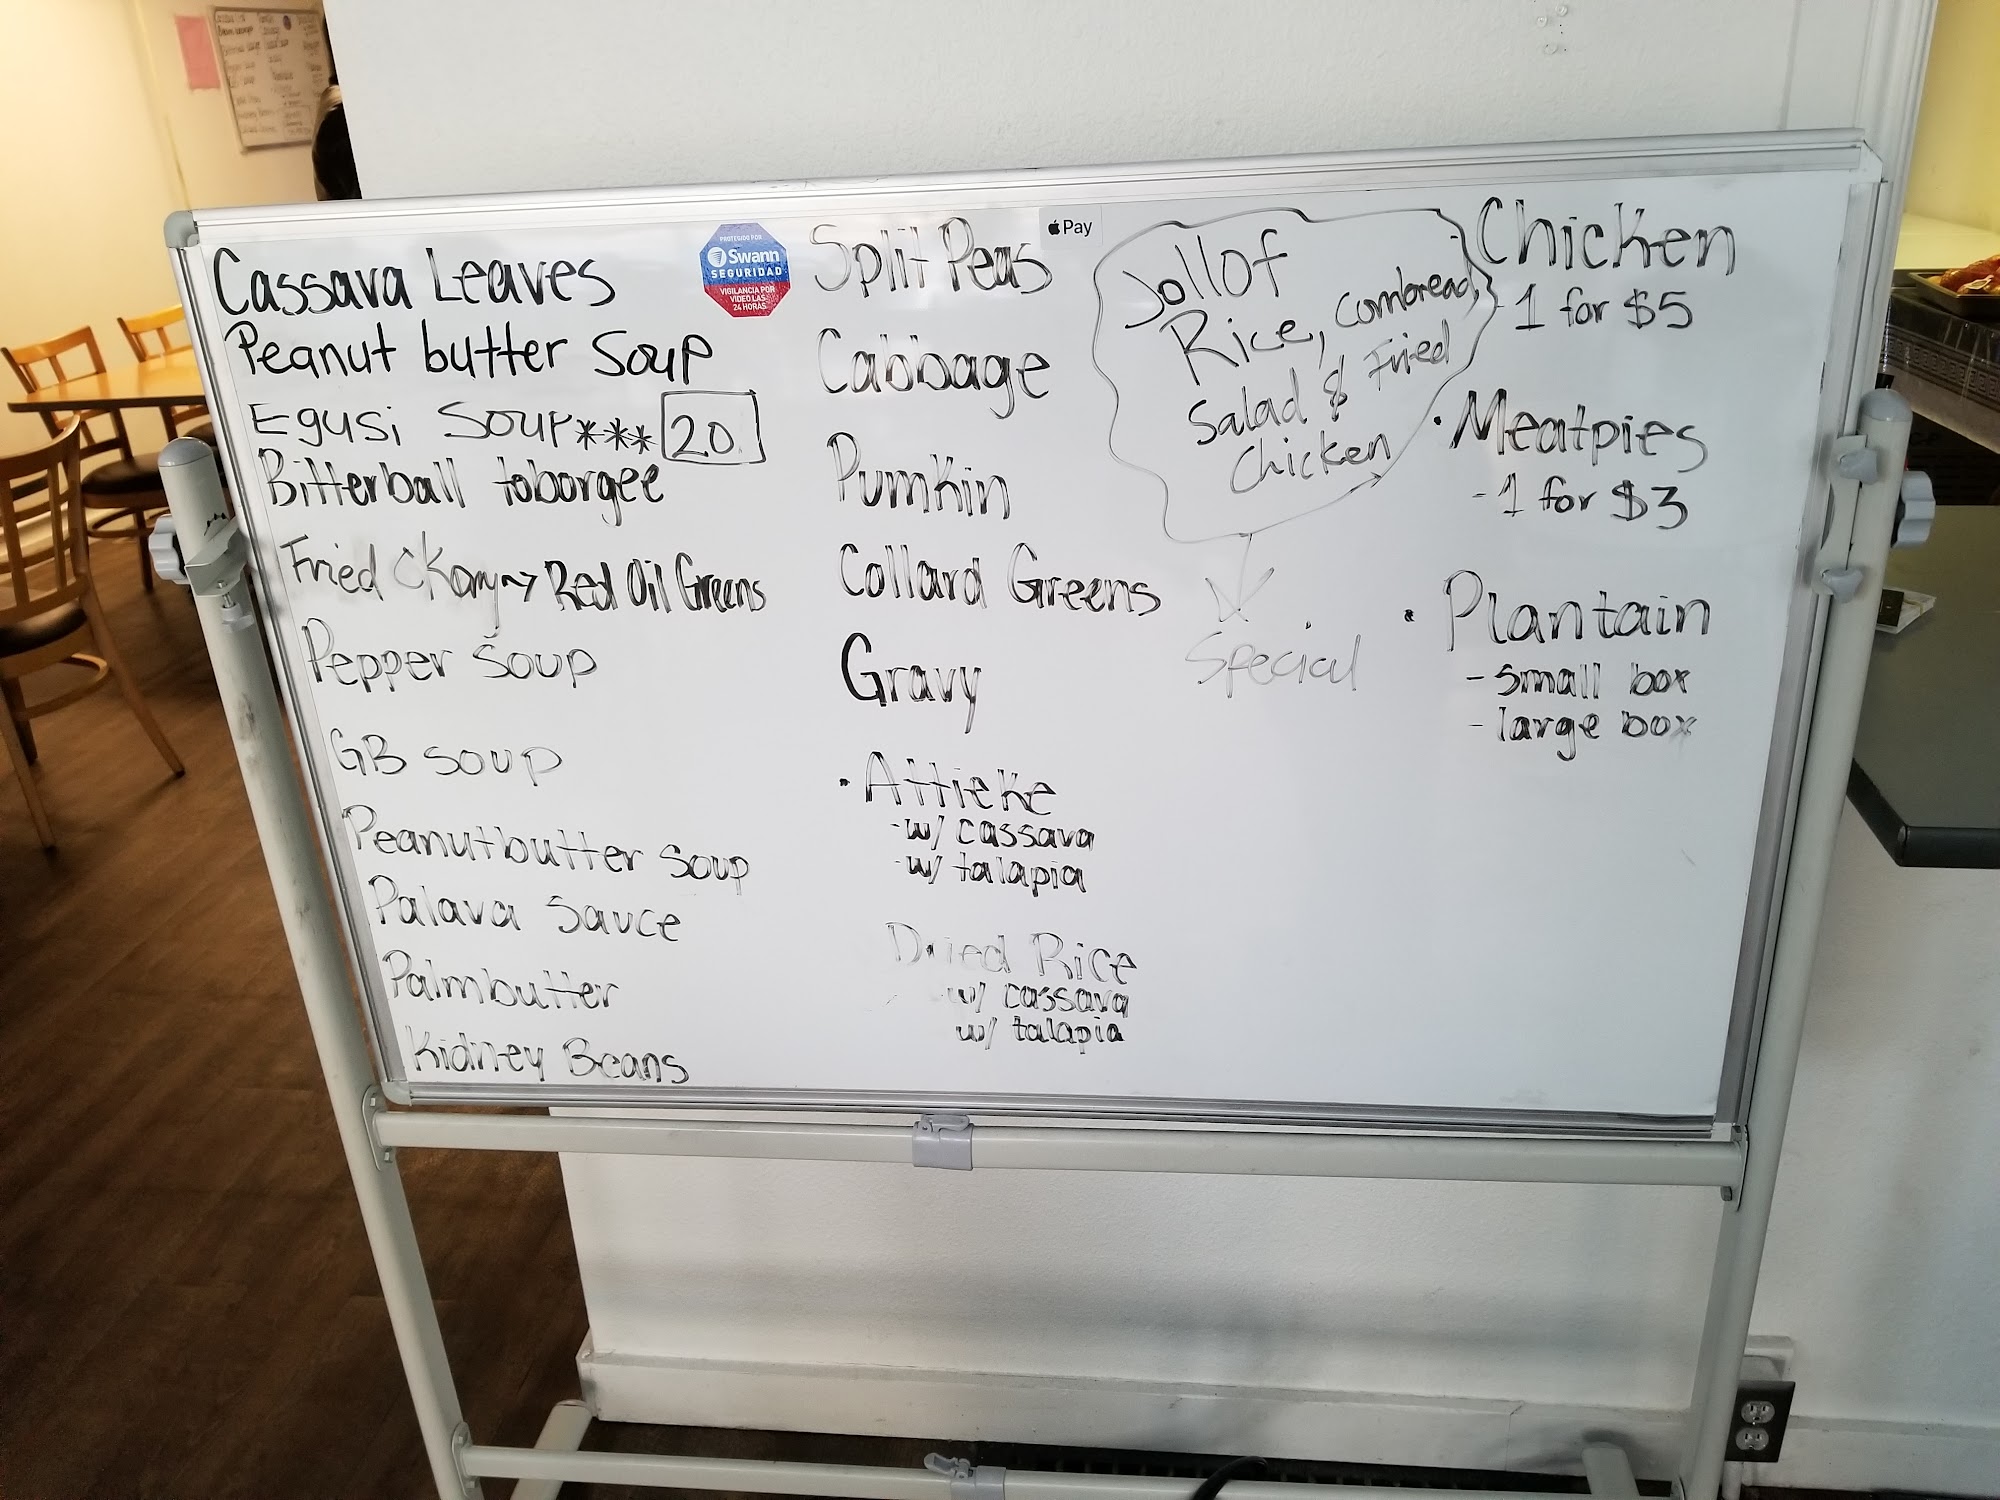 Cassava Leaves
Peanut butter Soup
Egusi Soup*** 20
Bitterball toborgee
Fried Okary → Red Oil Greens
Pepper Soup
GB soup
Peanutbutter Soup
Palava Sauce
Palmbutter
Kidney Beans
PROTEGIDO POR
Swann
SEGURIDAD
VIGILANCIA POR
VIDEO LAS
24 HORAS
Split Peas
Cabbage
Pumkin
Collard Greens
Gravy
· Attieke
- w/ cassava
- w/ talapia
Dried Rice
w/ cassava
w/ talapia
Pay
Jollof
Rice, Cornbread,
Salad & Fried
Chicken
Special
- Chicken
- 1 for $5
· Meatpies
- 1 for $3
· Plantain
- small box
- large box